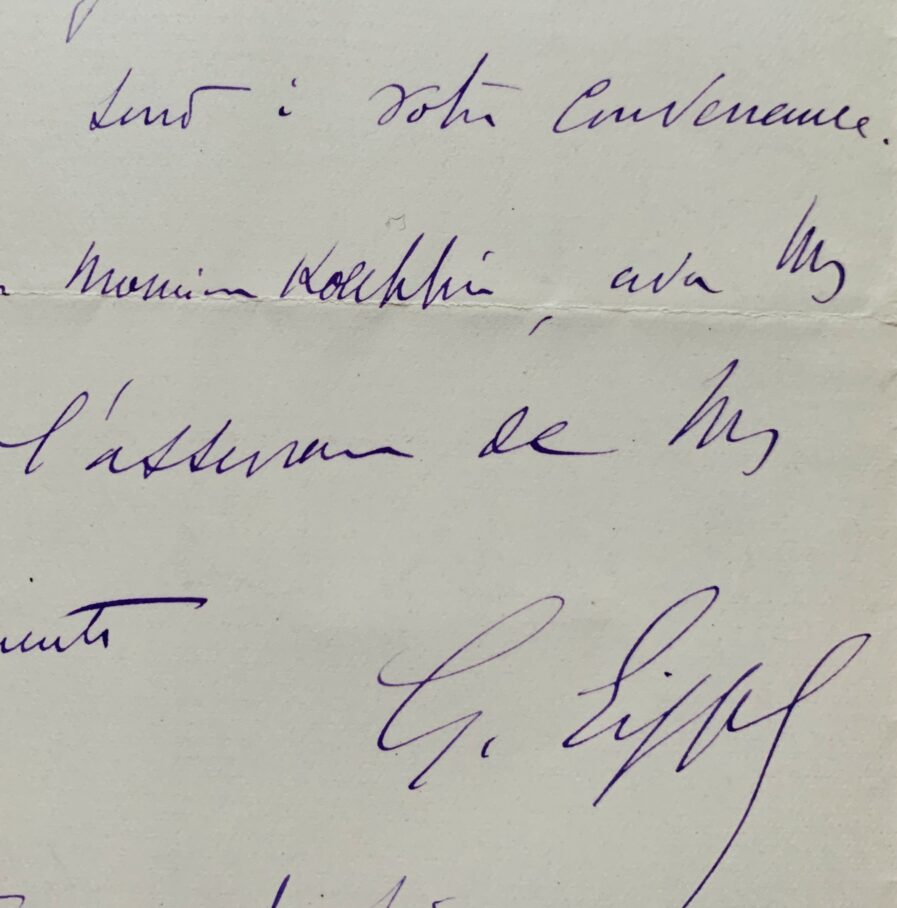 sera à votre convenance.
Monsieur Koechlin, avec Mes
l'assurance de Mes
ments
G. Eiffel